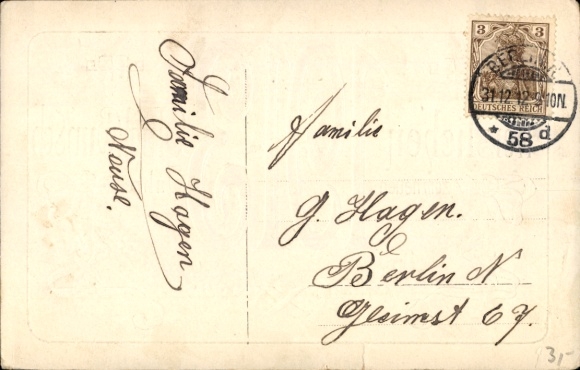 Familie Hagen
3
DEUTSCHES REICH
BERLIN
31.12.12.9-10N.
* 58 d
Familie
G. Hagen.
Berlin N
67.
3,-